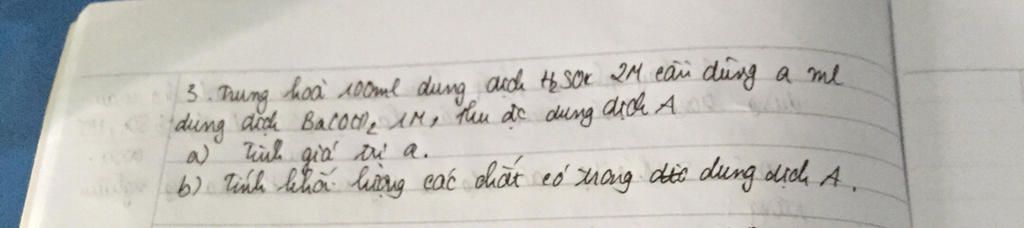 3. Trung hoà 100ml dung dịch H₂SO₄ 2M cần dùng a ml
dung dịch Ba(OH)₂ 1M, thu đc dung dịch A
a) Tính giá trị a.
b) Tính khối lượng các chất có trong dung dịch A.